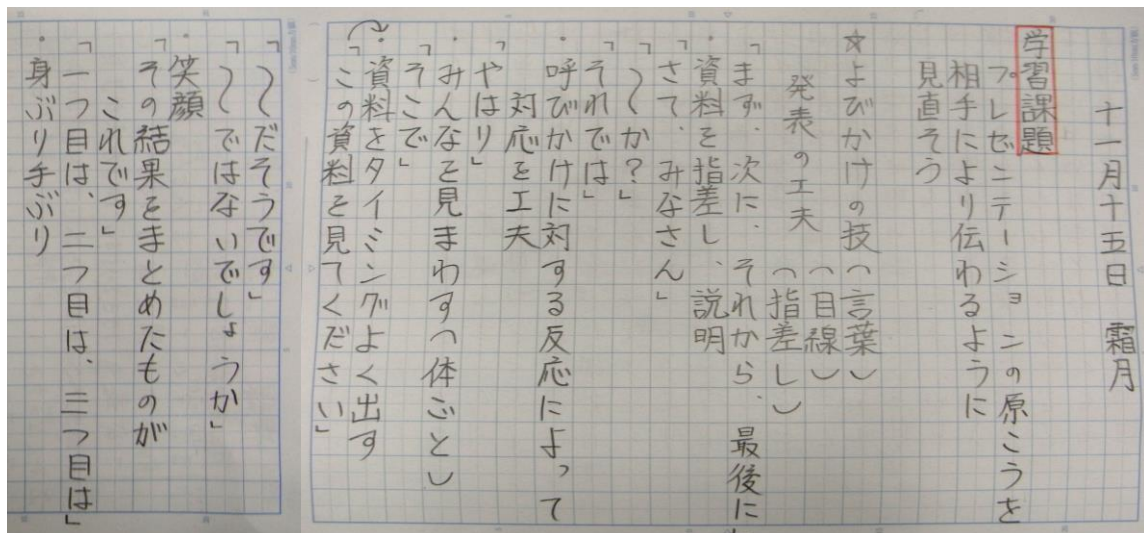 十一月十五日 霜月
学習課題
プレゼンテーションの原こうを
相手により伝わるように
見直そう
☆よびかけの技(言葉)
(目線)
発表の工夫(指差し)
「まず、次に、それから、最後に」
・資料を指差し、説明
「さて、みなさん」
「〜か?」
「それでは」
・呼びかけに対する反応によって
対応を工夫
「やはり」
・みんなを見まわす(体ごと)
「そこで」
・資料をタイミングよく出す
「この資料を見てください」
「〜だそうです」
「〜ではないでしょうか」
・笑顔
「その結果をまとめたものが
これです」
「一つ目は、二つ目は、三つ目は」
・身ぶり手ぶり